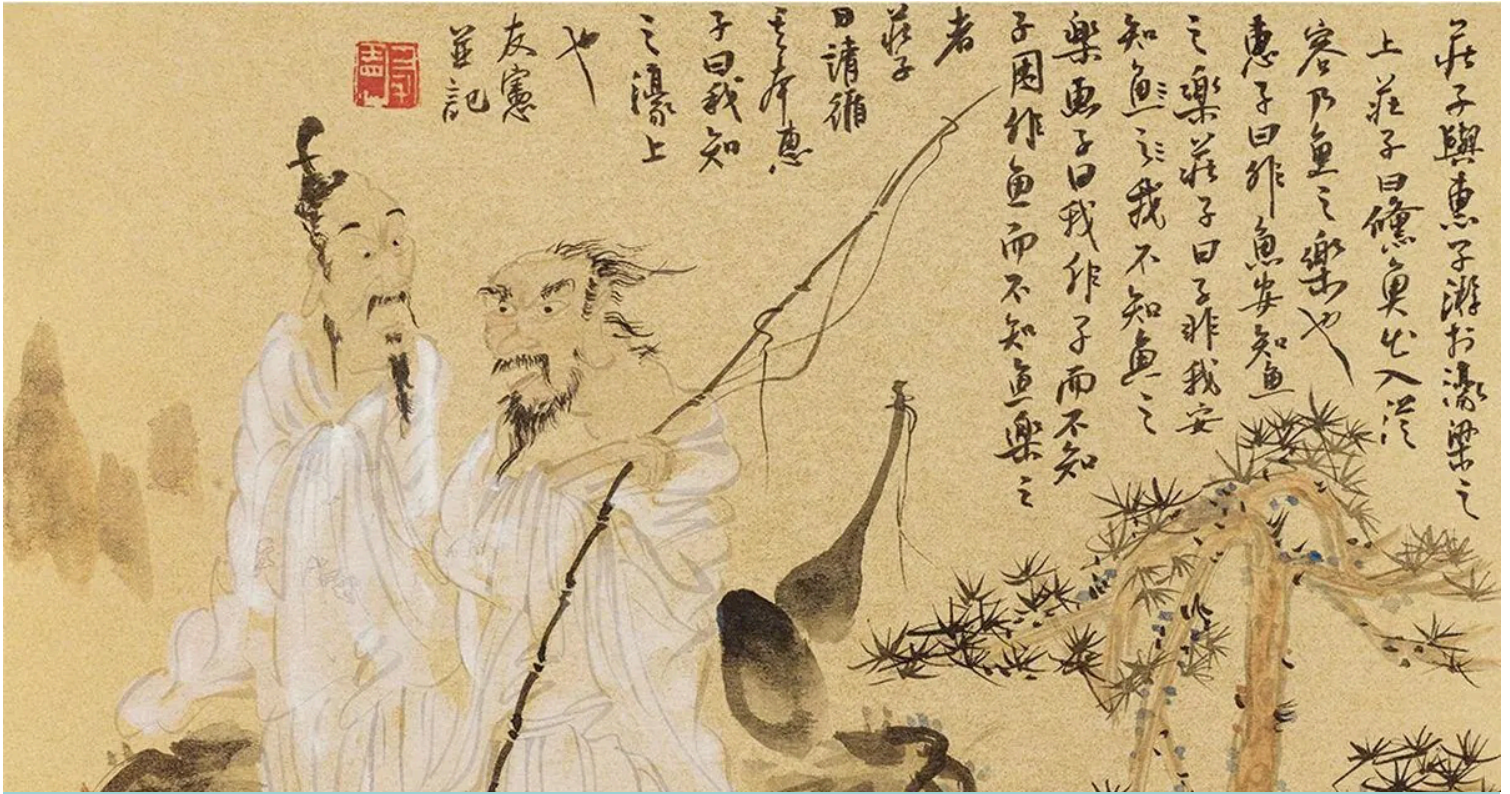 莊子與惠子游於濠梁之
上莊子曰儵魚出入從
容乃魚之樂也
惠子曰非魚安知魚
之樂莊子曰子非我安
知魚〻之〻我不知魚之
樂惠子曰我非子而不知
子固非魚而不知魚樂之
者
莊子
曰請循
其本惠
子曰我知
之濠上
也
友憲
並記